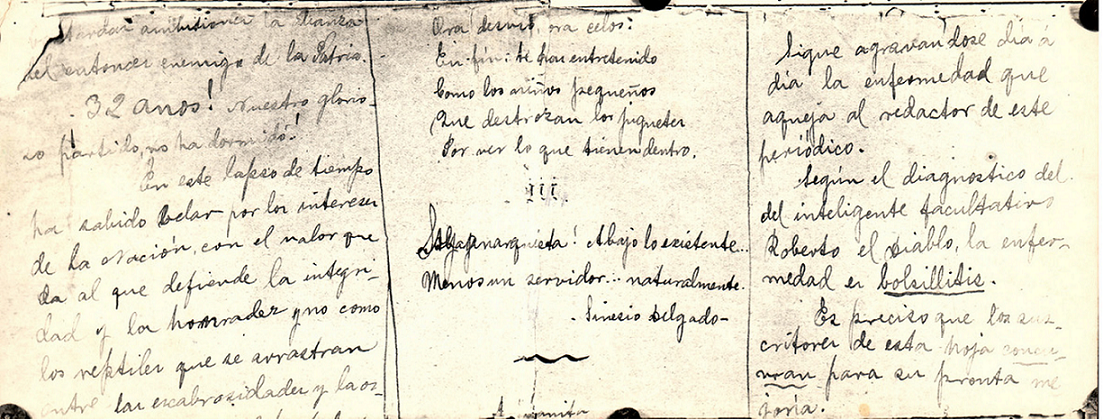 tardar ambiciona la Alianza
del entonces enemigo de la Patria.
32 anos! Nuestro glorio-
so partilo, no ha dormido!
En este lapso de tiempo
ha sabido velar por los intereses
de la Nación, con el valor que
da al que defiende la integri-
dad y la honradez y no como
los reptiles que se arrastran
entre las escabrosidades y la os-
Ora desvio, ora celos:
En fin: te han entretenido
Como los niños pequeños
Que destrozan los juguetes
Por ver lo que tienen dentro.
iii
anarquista! Abajo lo existente...
Menos un servidor... naturalmente.
- Sinesio Delgado -
Sigue agravandose dia a
dia la enfermedad que
aqueja al redactor de este
periódico.
Según el diagnostico del
del inteligente facultativo
Roberto el Diablo, la enfer-
medad es bolsillitis.
Es preciso que los sus-
critores de esta hoja concu-
rran para su pronta me
joria.